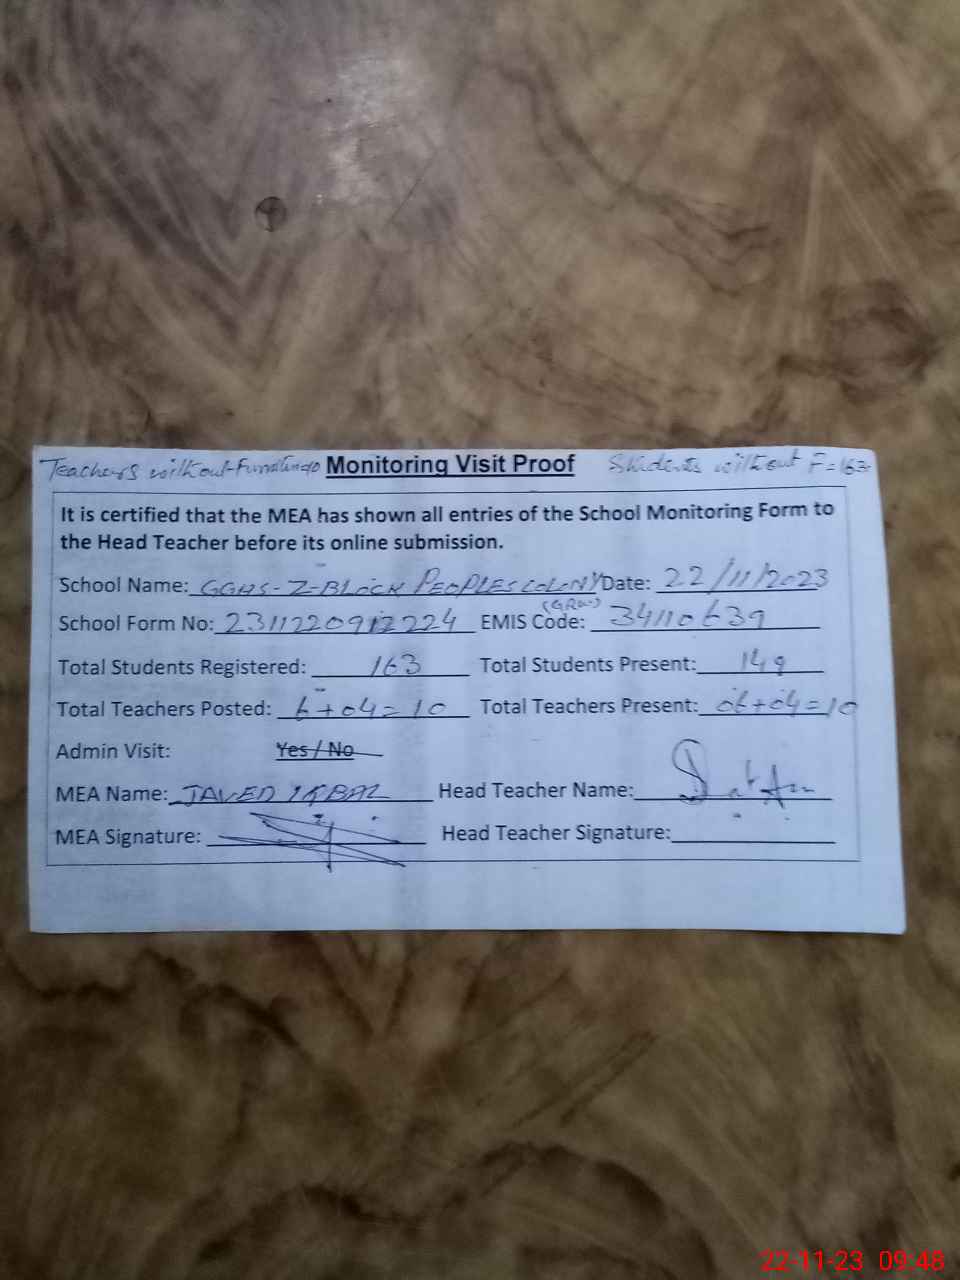 Teachers without Furniture Monitoring Visit Proof Students without F=163
It is certified that the MEA has shown all entries of the School Monitoring Form to
the Head Teacher before its online submission.
School Name: GGHS-Z-BLOCK PEOPLES COLONY Date: 22/11/2023
(GRW)
School Form No: 2311220912224 EMIS Code: 34110639
Total Students Registered: 163 Total Students Present: 149
Total Teachers Posted: 6+04=10 Total Teachers Present: 06+04=10
Admin Visit: Yes / No
MEA Name: JAVED IQBAL Head Teacher Name:
MEA Signature: Head Teacher Signature:
22-11-23 09:48